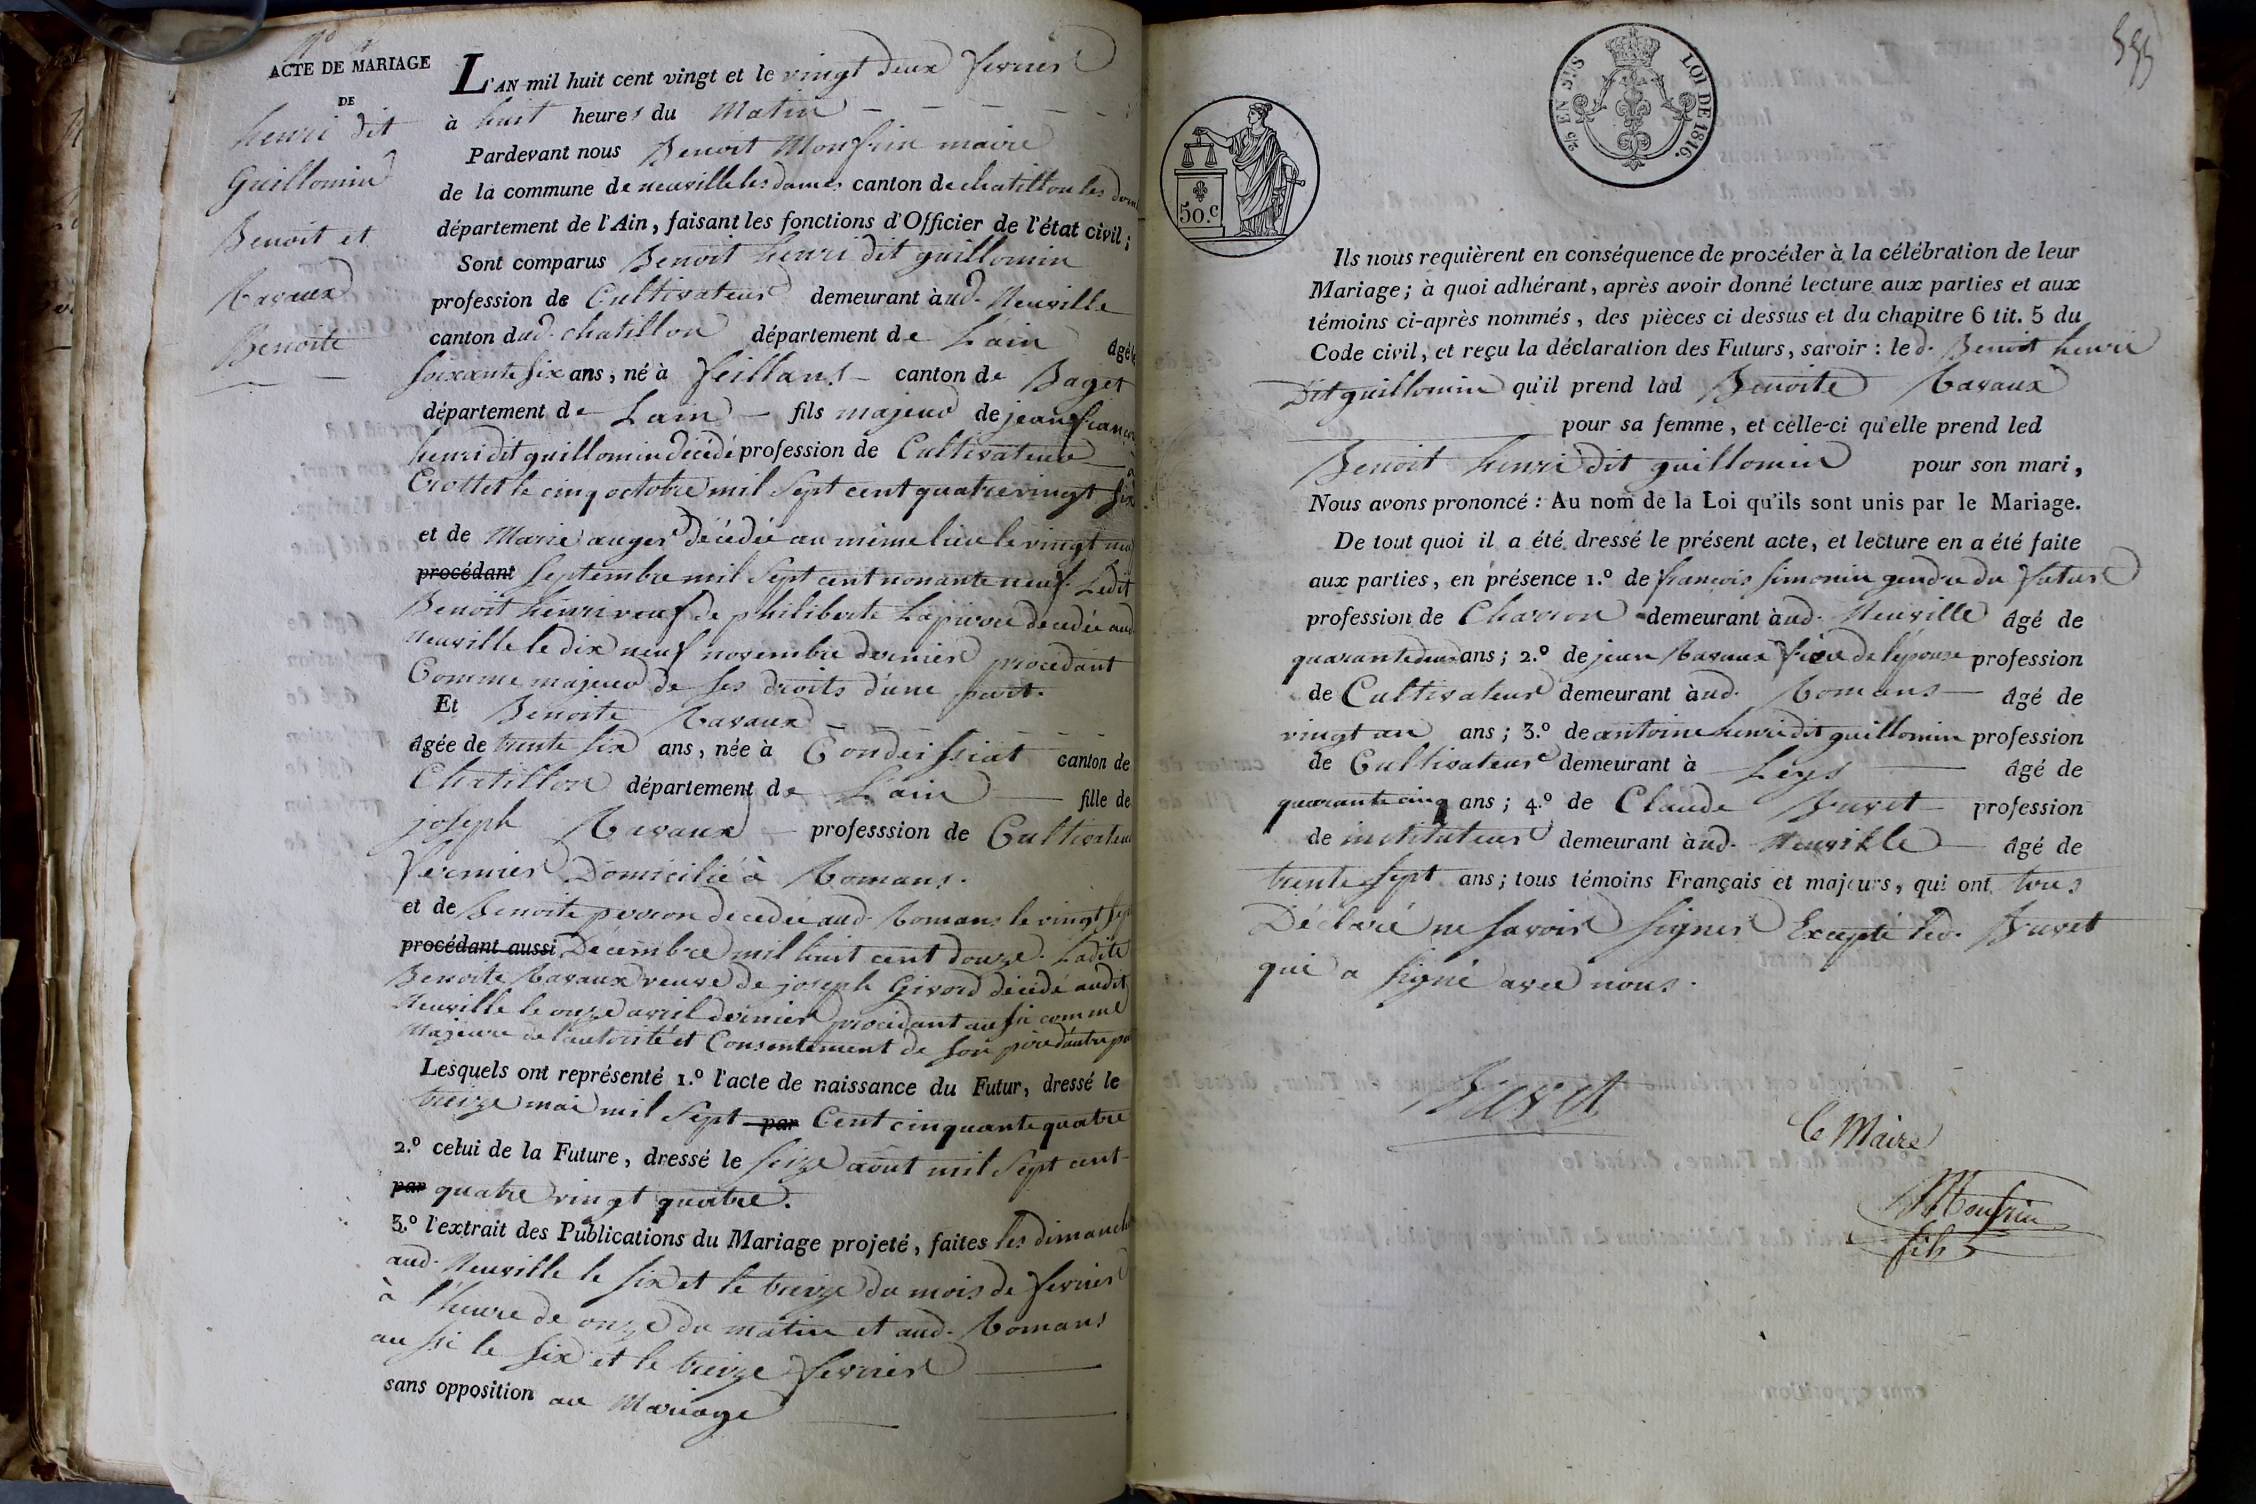 ACTE DE MARIAGE
DE
henri dit
Guillomin
Benoit et
Ravaux
Benoite
L'AN mil huit cent vingt et le vingt deux fevrier
à huit heures du Matin
Pardevant nous Benoit Monfrin maire
de la commune de neuville les dames canton de chatillon les dom
département de l'Ain, faisant les fonctions d'Officier de l'état civil;
Sont comparus Benoit henri dit guillomin
profession de Cultivateur demeurant à ud. Neuville
canton dud. chatillon département de L'ain âgé de
soixante six ans, né à feillans canton de Baget
département de Lain fils majeur de jean françois
henri dit guillomin décédé profession de Cultivateur à
Crottet le cinq octobre mil Sept cent quatre vingt six
et de Marie auger décédée au même lieu le vingt neuf
procédant Septembre mil Sept cent nonante neuf. Ledit
Benoit henri veuf de philiberte Lapierre decedée aud.
Neuville le dix neuf novembre dernier procédant
Comme majeur de ses droits d'une part.
Et Benoite Ravaux
âgée de trente six ans, née à Condeissiat canton de
Chatillon département de Lain fille de
joseph Ravaux professsion de Cultivateur
fermier Domicilié à Romans.
et de Benoite perron decedée aud. Romans le vingt sept
procédant aussi Décembre mil huit cent douze. Ladite
Benoite Ravaux veuve de joseph Girord décédé audit
Neuville le onze avril dernier procédant aussi comme
Majeure de l'autorité et Consentement de son père d'autre part
Lesquels ont représenté 1.º l'acte de naissance du Futur, dressé le
treize mai mil Sept par Cent cinquante quatre
2.º celui de la Future, dressé le seize août mil Sept cent
par quatre vingt quatre.
3.º l'extrait des Publications du Mariage projeté, faites les dimanche
aud. Neuville le six et le treize du mois de fevrier
à l'heure de onze du matin et aud. Romans
aussi le six et le treize fevrier
sans opposition au Mariage
555
50.c
25 EN SUS
LOI DE 1816.
Ils nous requièrent en conséquence de procéder à la célébration de leur
Mariage; à quoi adhérant, après avoir donné lecture aux parties et aux
témoins ci-après nommés, des pièces ci dessus et du chapitre 6 tit. 5 du
Code civil, et reçu la déclaration des Futurs, savoir : le d. Benoit henri
Dit guillomin qu'il prend lad Benoite Ravaux
pour sa femme, et celle-ci qu'elle prend led
Benoit henri dit guillomin pour son mari,
Nous avons prononcé : Au nom de la Loi qu'ils sont unis par le Mariage.
De tout quoi il a été dressé le présent acte, et lecture en a été faite
aux parties, en présence 1.º de françois simonin gendre du futur
profession de Charron demeurant à ud. Neuville âgé de
quarante deux ans; 2.º de jean Ravaux frère de l'épouse profession
de Cultivateur demeurant à ud. Romans âgé de
vingt un ans; 3.º de antoine henri dit guillomin profession
de Cultivateur demeurant à Leys âgé de
quarante cinq ans; 4.º de Claude Buvet profession
de instituteur demeurant à ud. Neuville âgé de
trente Sept ans; tous témoins Français et majeurs, qui ont tous
Déclaré ne savoir signer Excepté led. Buvet
qui a signé avec nous.
Buvet
le Maire
Monfrin
fils